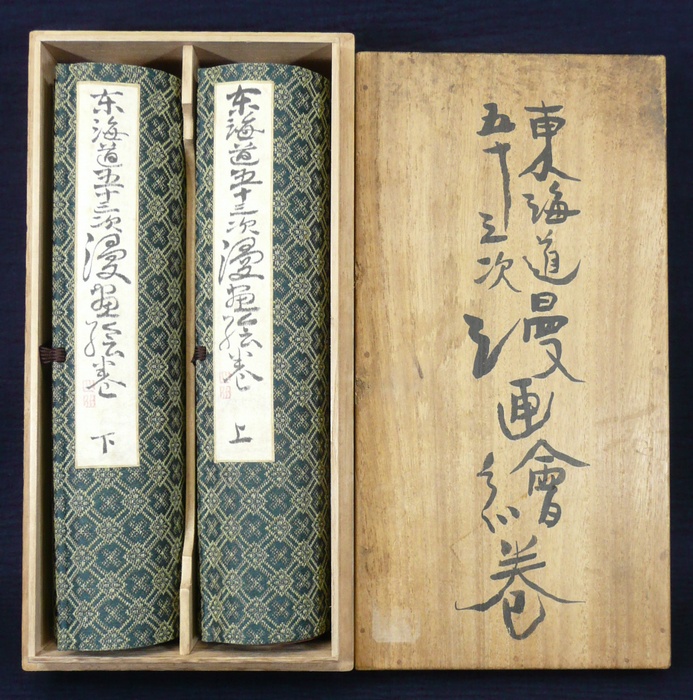 東海道
五十三次
漫画繪巻
东海道五十三次漫画絵巻
上
东海道五十三次漫画絵巻
下